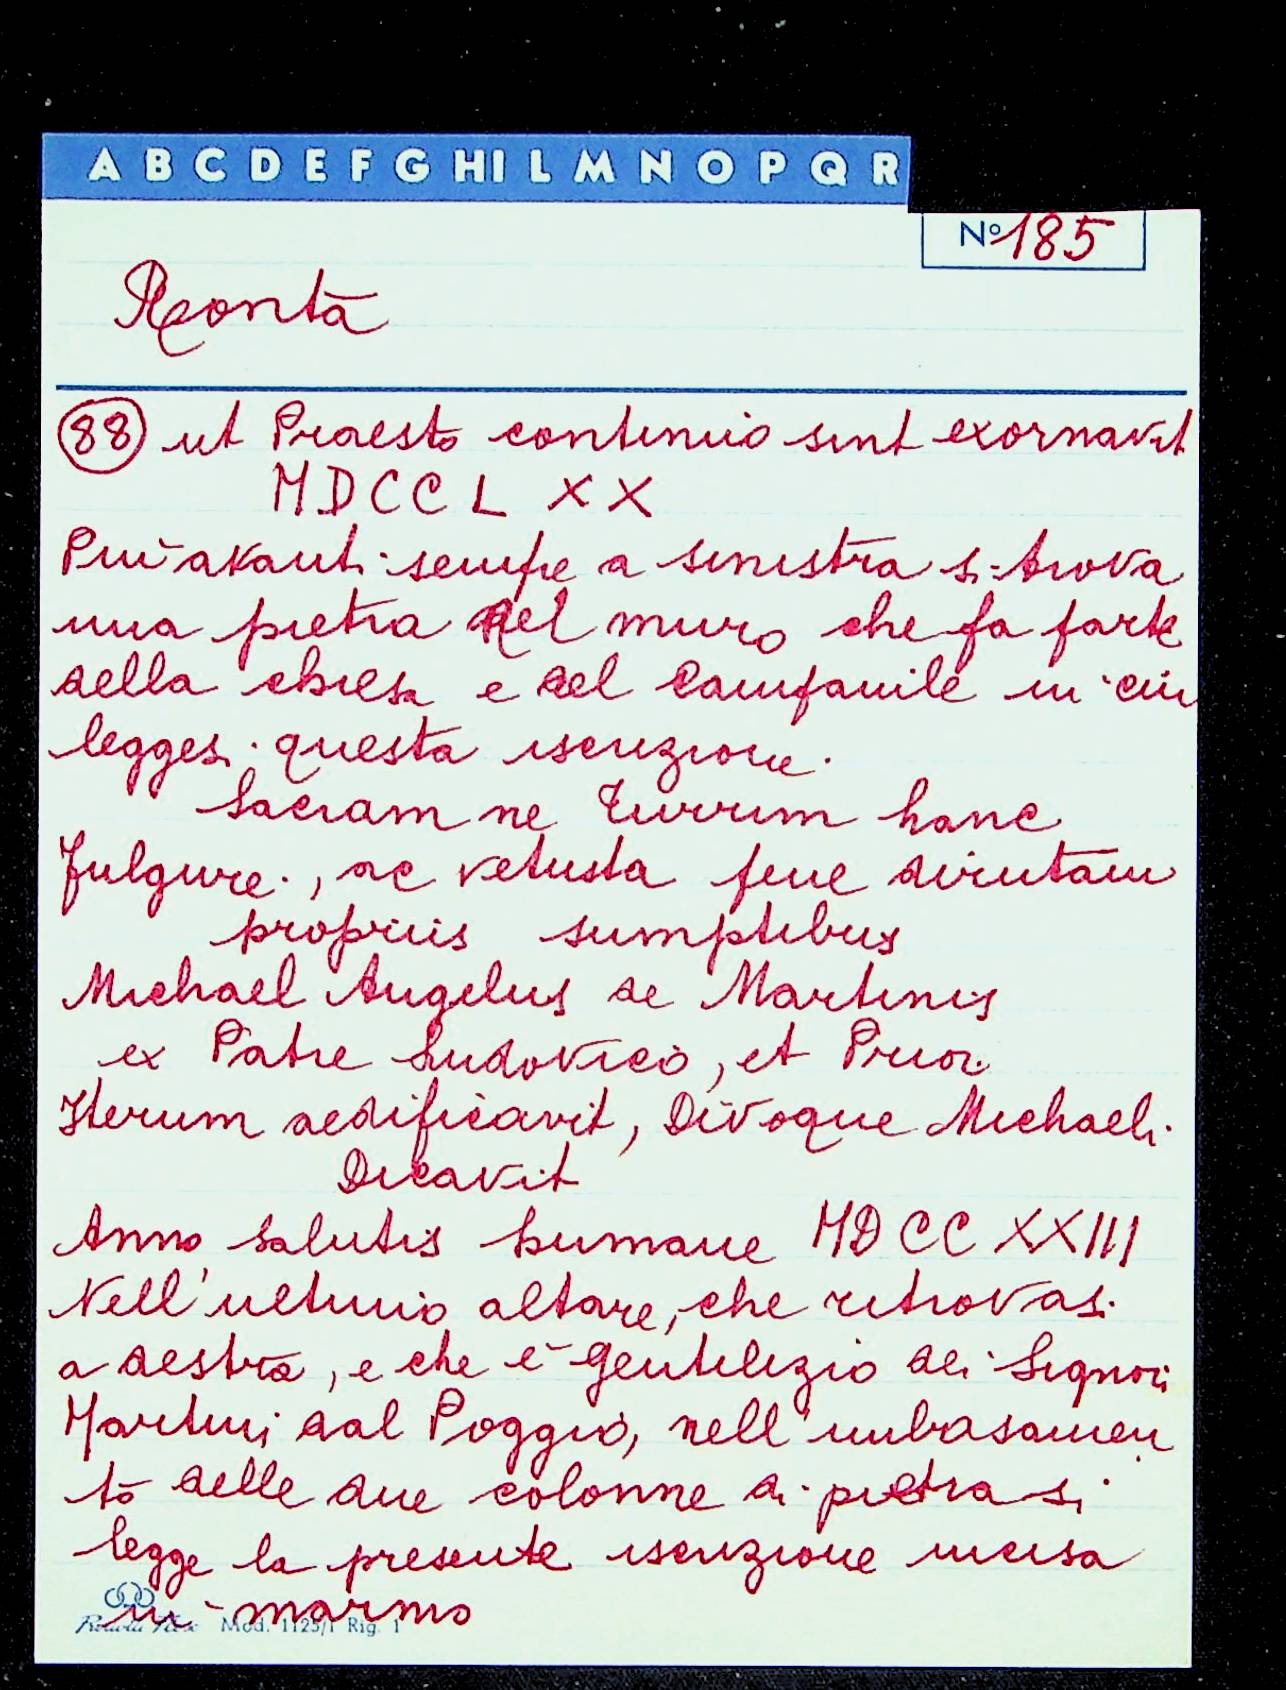 A B C D E F G HI L M N O P Q R
N° 185
Reonta
88 ut Praesto continuio sint exornavit
MDCCLXX
Più avanti sempre a sinistra si trova
una pietra nel muro che fa parte
della chiesa e del Campanile in cui
leggesi questa iscrizione.
Sacram ne Turrim hanc
fulgure., ac vetusta fene dirutam
propriis sumptibus
Michael Angelus de Martinis
ex Patre Ludovico, et Prior.
Iterum aedificavit, Divoque Michaeli
Dicavit
Anno salutis humane MDCCXXIII
Nell'ultimo altare, che ritrovasi
a destra, e che è gentilizio dei Signori
Martini dal Poggio, nell'imbasamen
to delle due colonne di pietra si
legge la presente iscrizione incisa
in marmo
Mod. 1125/1 Rig. 1